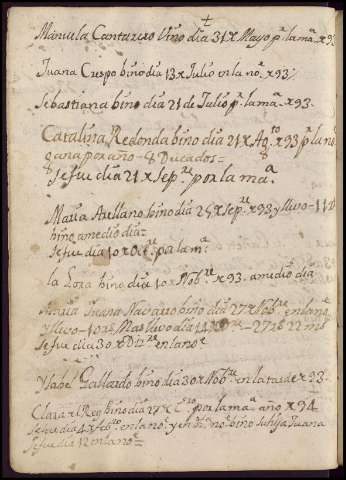 +
Manuela Canturero Vino dia 31 x Mayo pr. la ma. x 93
Juana Crespo bino dia 13 x Julio en la no. x 93
Sebastiana bino dia 21 de Julio pr. la ma. x 93.
Catalina Redonda bino dia 21 x Agto x 93 pr la no
gana por año - 8 Ducados =
se fue dia 21 x Sepre por la ma.
Maria Arellano bino dia 25 x Sepre x 93 y llevo - 11
bino a medio dia =
se fue dia 10 x Ocre pr. la ma.
la Loza bino dia 10 x Nobre x 93. a medio dia
Maria Juana Navarro bino dia 27 x Nobre en la no
y llevo - 10 rs Mas llevo dia 14 x 27 rs 22 ms
se fue dia 30 x Dizre en la noe
Ysabel Gallardo bino dia 30 x Nobre en la tarde x 93 -
Clara x l Rey bino dia 27 x Eno por la ma. año x 94
se fue dia 4 x febo en la no. y en ha. no. bino su hija Juana
se fue dia 12 en la noe =